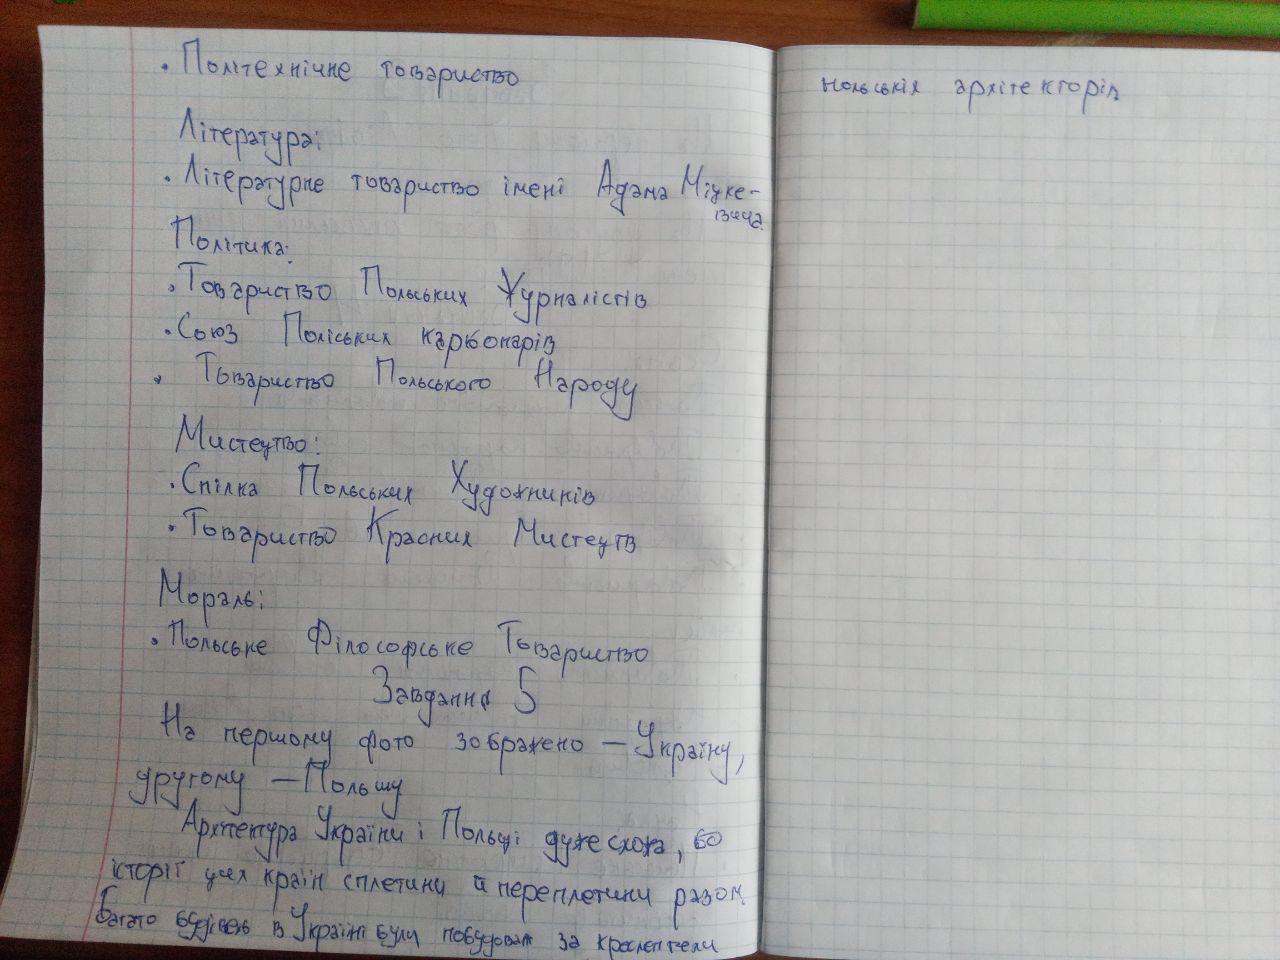 . Політехнічне товариство
Література:
. Літературне товариство імені Адама Міцке-
вича.
Політика:
. Товариство Польських Журналістів
. Союз Поліських карбонарів
. Товариство Польського Народу
Мистецтво:
. Спілка Польських Художників
. Товариство Красних Мистецтв
Мораль:
. Польське Філософське Товариство
Завдання 5
На першому фото зображено — Україну,
другому — Польшу
Архітектура України і Польщі дуже схожа, бо
історії цих країн сплетини й переплетини разом.
Багато будівель в Україні були побудовані за
польскіх архітекторів